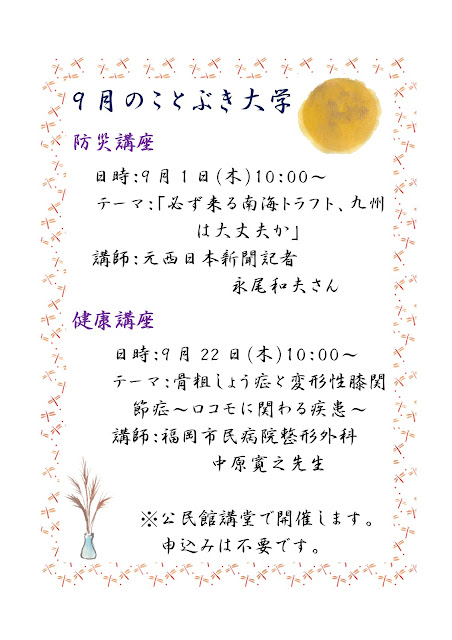 9月のことぶき大学
防災講座
日時:9月1日(木)10:00~
テーマ:「必ず来る南海トラフト、九州
は大丈夫か」
講師:元西日本新聞記者
永尾和夫さん
健康講座
日時:9月22日(木)10:00~
テーマ:骨粗しょう症と変形性膝関
節症~ロコモに関わる疾患~
講師:福岡市民病院整形外科
中原寛之先生
※公民館講堂で開催します。
申込みは不要です。